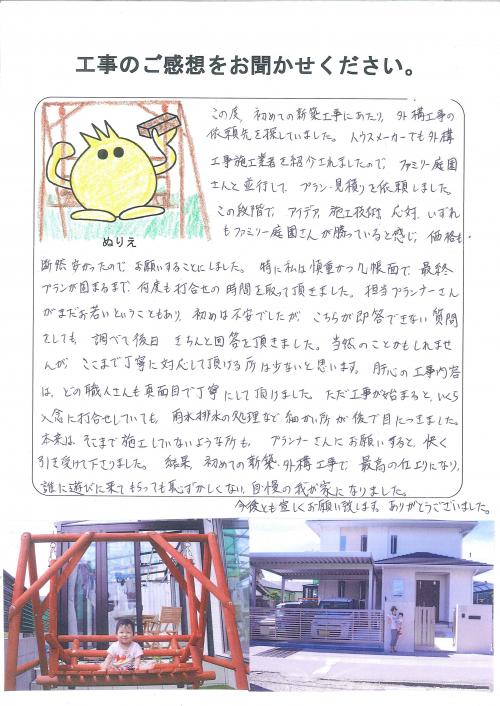 工事のご感想をお聞かせください。
この度、初めての新築工事にあたり、外構工事の
依頼先を探していました。ハウスメーカーでも外構
工事施工業者を紹介されましたので、ファミリー庭園
さんと並行して、プラン・見積りを依頼しました。
この段階で、アイデア、施工技術、応対、いずれ
もファミリー庭園さんが勝っていると感じ、価格も
ぬりえ
断然安かったので、お願いすることにしました。特に私は慎重かつ几帳面で、最終
プランが固まるまで、何度も打合せの時間を取って頂きました。担当プランナーさん
がまだお若いということもあり、初めは不安でしたが、こちらが即答できない質問
をしても、調べて後日きちんと回答を頂きました。当然のことかもしれませ
んが、ここまで丁寧に対応して頂ける所は少ないと思います。肝心の工事内容
は、どの職人さんも真面目で丁寧にして頂けました。ただ工事が始まると、いくら
入念に打合せしていても、雨水排水の処理など細かい所が後で目につきました。
本来は、そこまで施工していないような所も、プランナーさんにお願いすると、快く
引き受けて下さりました。結果、初めての新築・外構工事で、最高の仕上りになり、
誰に遊びに来てもらっても恥ずかしくない、自慢の我が家になりました。
今後とも宜しくお願い致します。ありがとうございました。